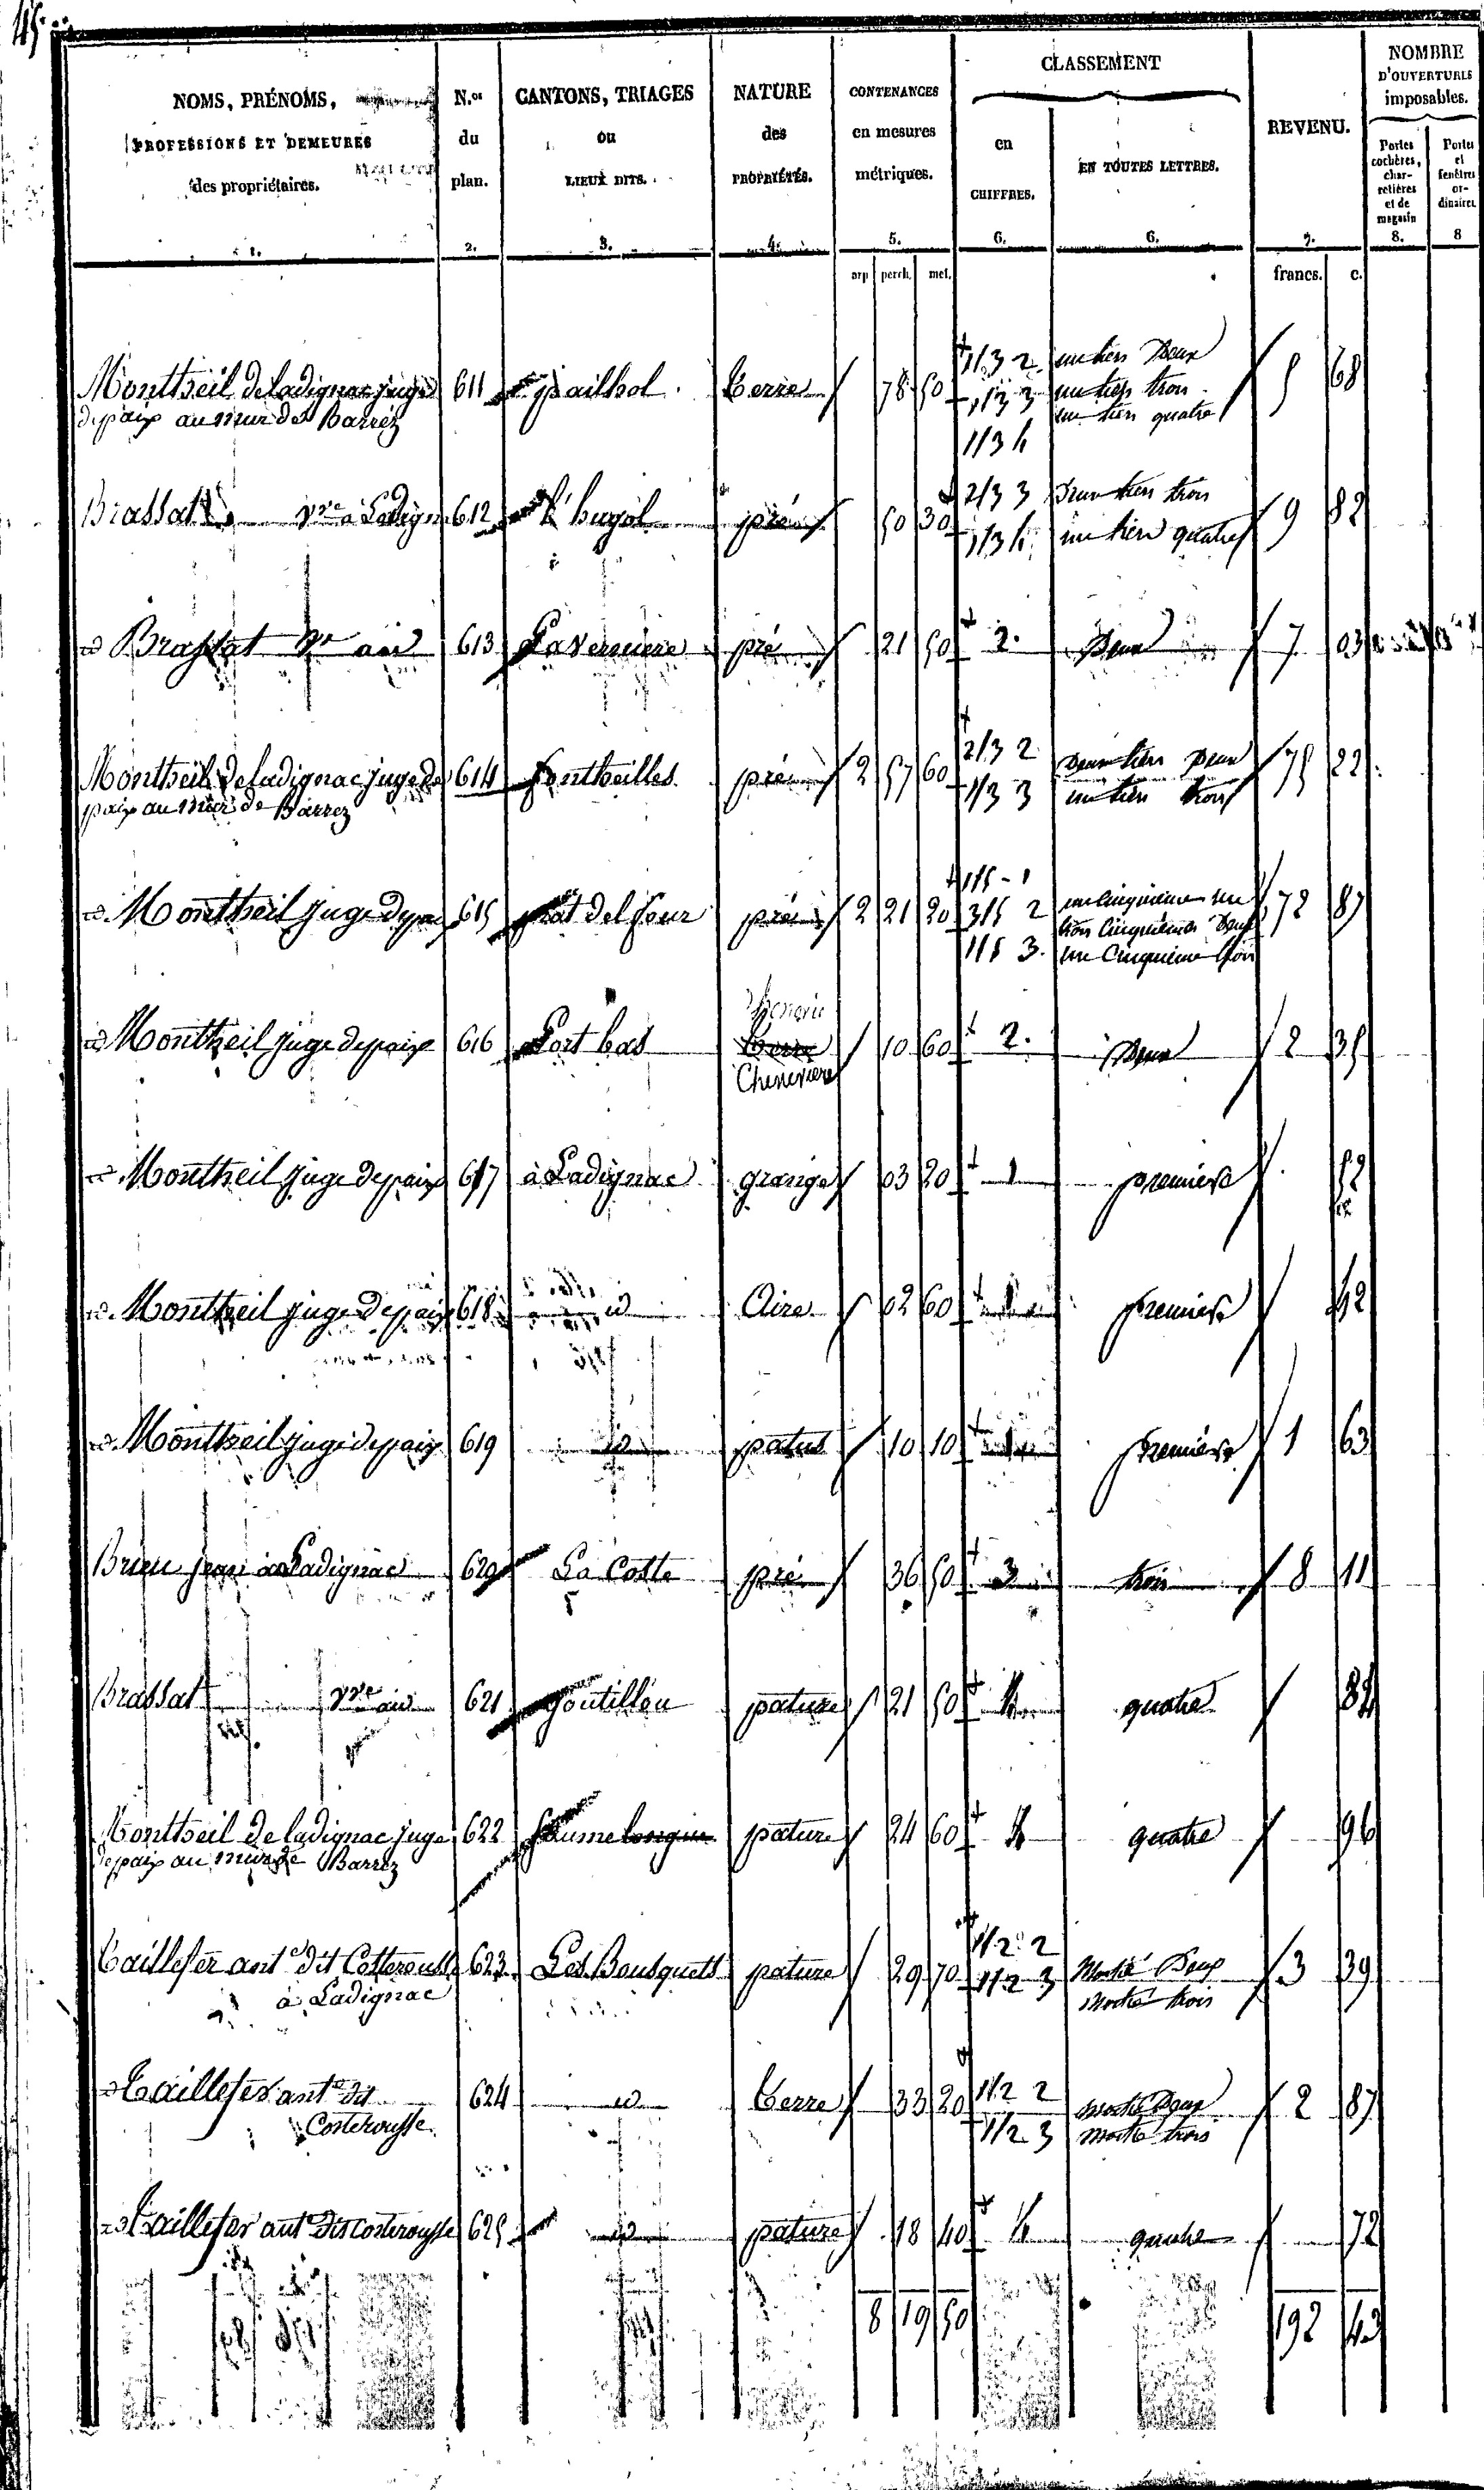 45
NOMS, PRÉNOMS,
PROFESSIONS ET DEMEURES
des propriétaires.
1.
N.os
du
plan.
2.
CANTONS, TRIAGES
ou
LIEUX DITS.
3.
NATURE
des
PROPRIÉTÉS.
4.
CONTENANCES
en mesures
métriques.
5.
CLASSEMENT
en
CHIFFRES.
6.
EN TOUTES LETTRES.
6.
REVENU.
7.
NOMBRE
D'OUVERTURES
imposables.
Portes
cochères,
char-
retières
et de
magasin
8.
Portes
et
fenêtres
or-
dinaires.
8
arp perch. met. francs. c.
Montheil de ladignac juge 611 pailhol terre 78 50 1/3 2 un tiers Deux 5 68
de paix au mur de Barrez 1/3 3 un tiers trois
1/3 4 un tiers quatre
Brassat vve à Ladignac 612 L'hugol pré 50 30 2/3 3 Deux tiers trois 9 82
1/3 4 un tiers quatre
id Brassat vve aud 613 La Verniere pré 21 50 2. Deux 7 03
Montheil de ladignac juge de 614 fontheilles pré 2 57 60 2/3 2 Deux tiers Deux 75 22
paix au mur de Barrez 1/3 3 un tiers trois
id. Montheil juge de paix 615 prat del four pré 2 21 20 1/5 - 1 un cinquième un 72 87
3/5 2 trois cinquièmes Deux
1/5 3. un cinquième trois
id Montheil juge de paix 616 Lort bas terre 10 60 2. Deux 2 35
Cheneviere
id. Montheil juge de paix 617 à Ladignac grange 03 20 1 première 52
id. Montheil juge de paix 618 id Aire 02 60 1 première 42
id. Montheil juge de paix 619 id patus 10 10 1 première 1 63
Brieu jean à Ladignac 620 La Coste pré 36 50 3 trois 8 11
Brassat vve aud 621 goutillou pature 21 50 4 quatre 84
Montheil de ladignac juge 622 saume longue pature 24 60 4 quatre 96
de paix au mur de Barrez
Taillefer ant.e dit Costerousse 623 Les Bousquets pature 29 70 1/2 2 Moitié Deux 3 39
à Ladignac 1/2 3 Moitié trois
id Taillefer ant.e dit 624 id terre 33 20 1/2 2 Moitié Deux 2 87
Costerousse 1/2 3 Moitié trois
id Taillefer ant.e dit Costerousse 625 id pature 18 40 4 quatre 72
8 19 50 192 43